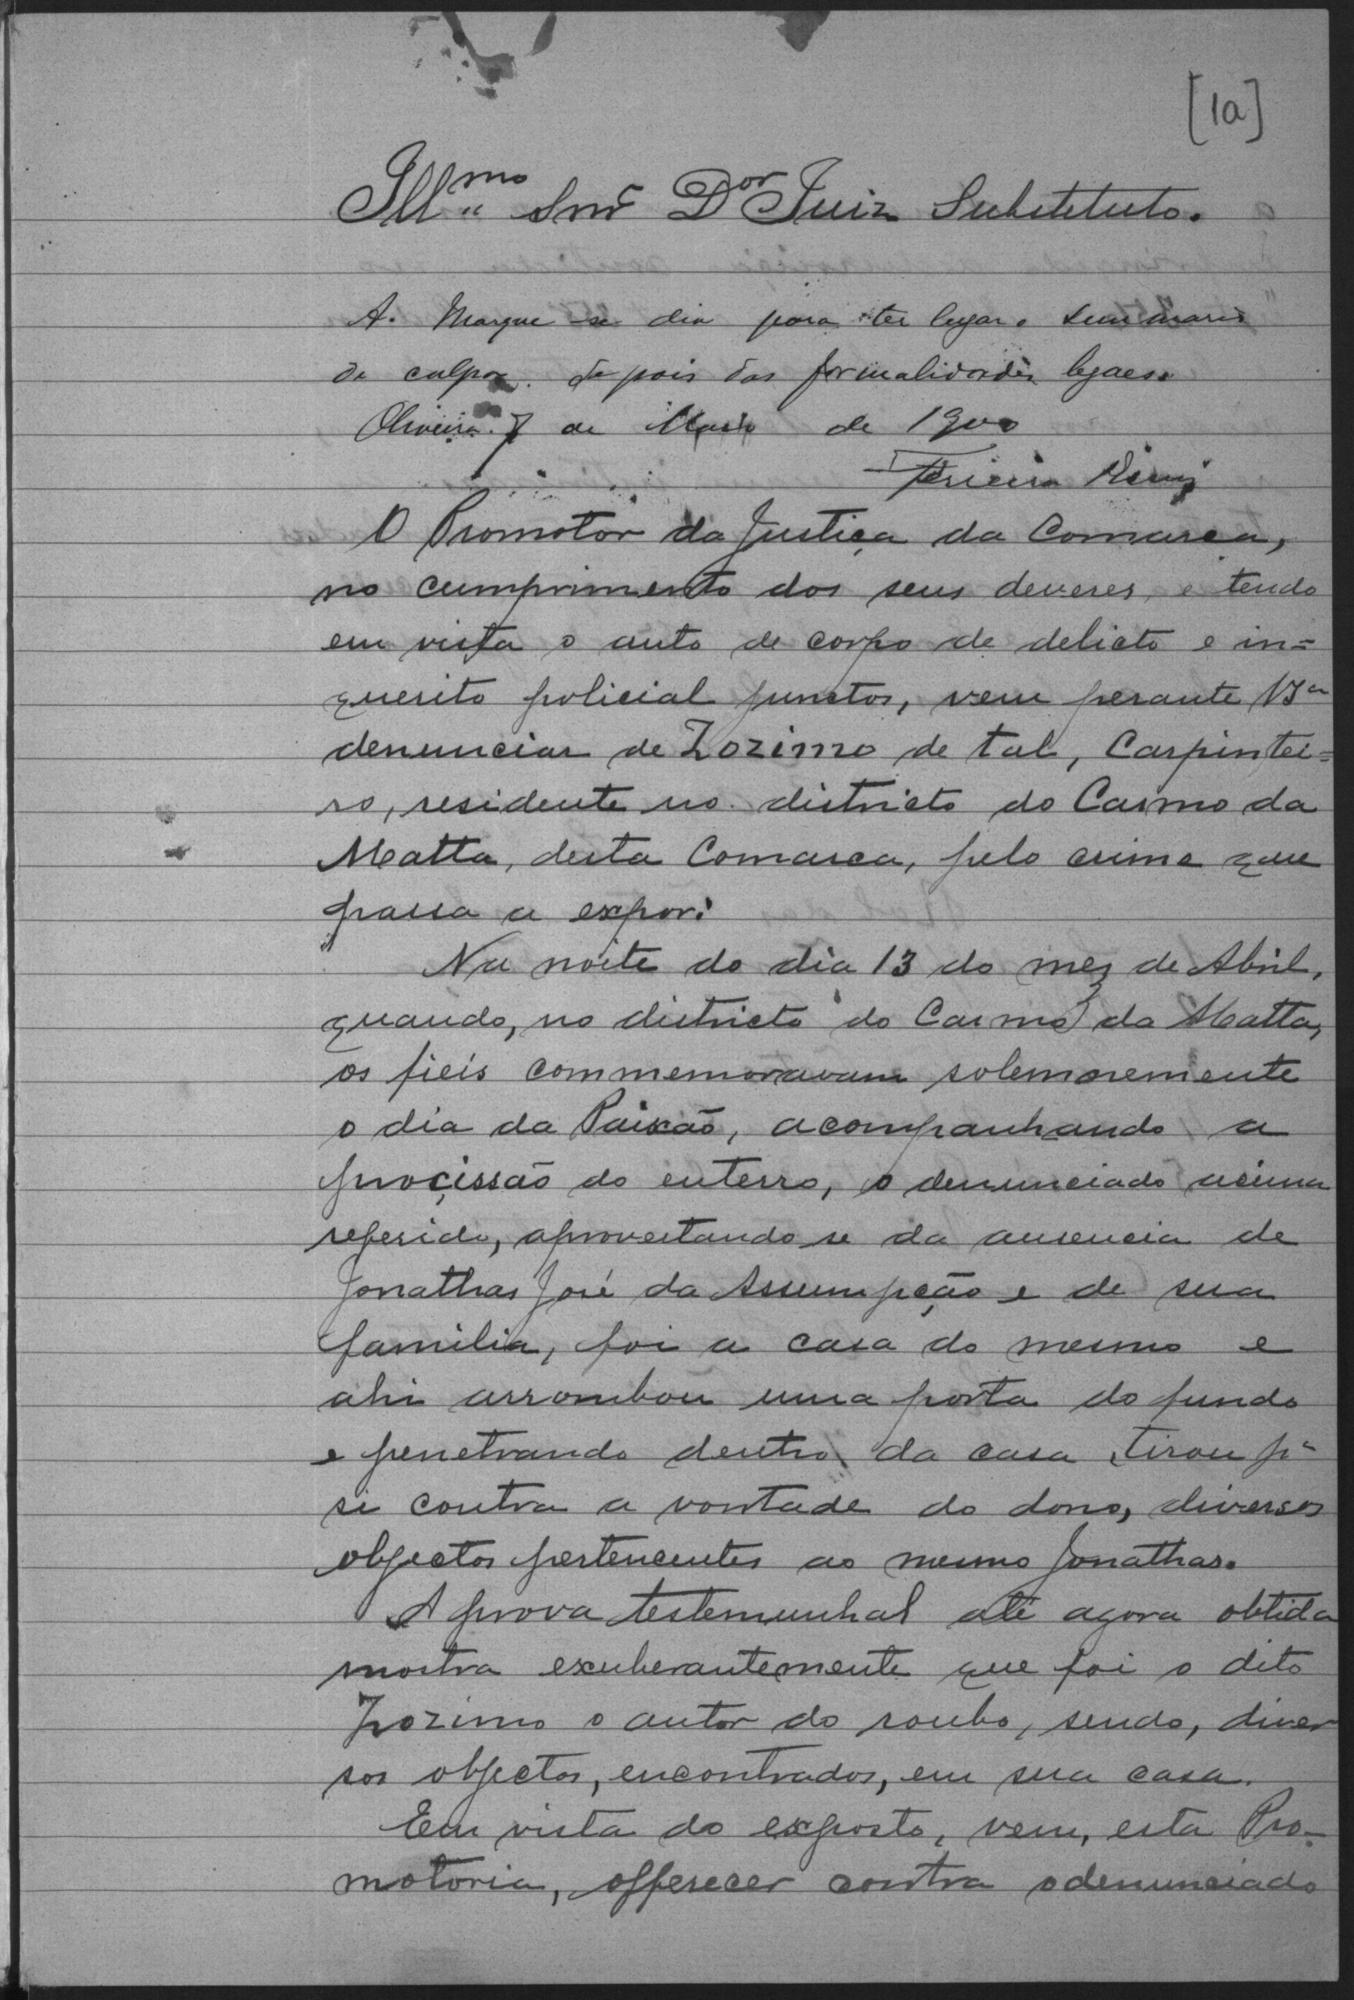 [1a]
Illmo Snr Dor Juiz Substituto.
A. Marque se dia para ter logar o summario
de culpa. depois das formalidades legaes.
Oliveira. 7 de Maio de 1900
O Promotor da Justiça da Comarca,
no cumprimento dos seus deveres, e tendo
em vista o auto de corpo de delicto e in=
querito policial junctos, vem perante VSa
denunciar de Zozimo de tal, Carpintei=
ro, residente no districto do Carmo da
Matta, desta Comarca, pelo crime que
passa a expor:
Na noite do dia 13 do mez de Abril,
quando, no districto do Carmo da Matta,
os fieis commemoravam solemnemente
o dia da Paixão, acompanhando a
procissão do enterro, o denunciado acima
referido, aproveitando se da ausencia de
Jonathas José da Assumpção e de sua
familia, foi a casa do mesmo e
ahi arrombou uma porta do fundo
e penetrando dentro da casa, tirou pa
si contra a vontade do dono, diversos
objectos pertencentes ao mesmo Jonathas.
A prova testemunhal até agora obtida
mostra exuberantemente que foi o dito
Zozimo o autor do roubo, sendo, diver
sos objectos, encontrados, em sua casa.
Em vista do exposto, vem, esta Pro-
motoria, offerecer contra o denunciado